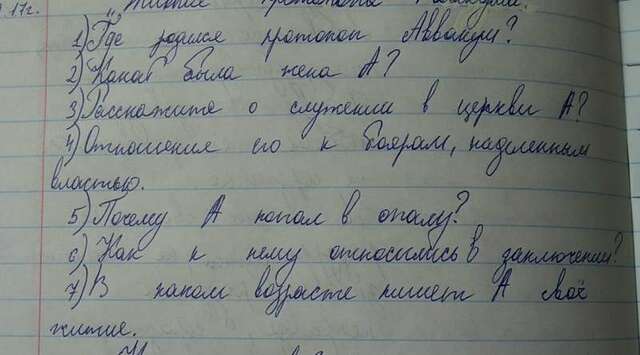 .17г.
"Житие протопопа Аввакума".
1) Где родился протопоп Аввакум?
2) Какая была жена А?
3) Расскажите о служении в церкви А?
4) Отношения его к боярам, наделенным
властью.
5) Почему А попал в опалу?
6) Как к нему относились в заключении?
7) В каком возрасте пишет А своё
житие.